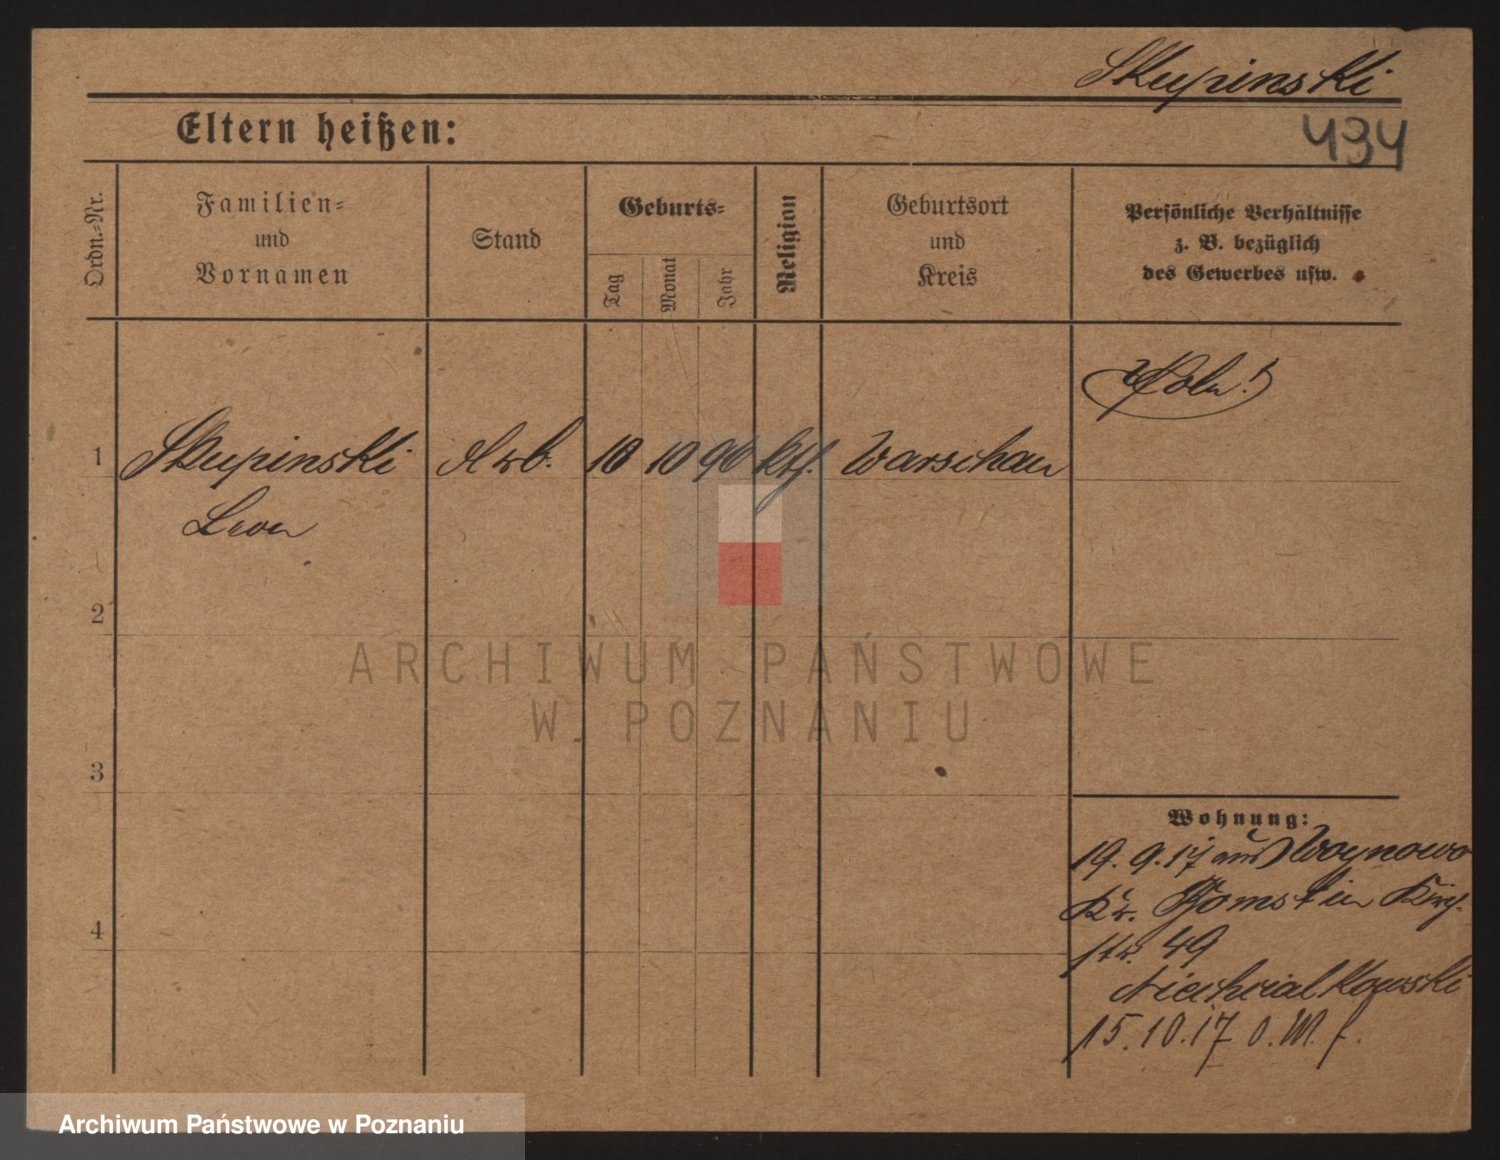 Skupinski
494
Eltern heißen:
Ordn.-Nr.
Familien-
und
Vornamen
Stand
Geburts-
Tag
Monat
Jahr
Religion
Geburtsort
und
Kreis
Persönliche Verhältnisse
z. B. bezüglich
des Gewerbes usw.
Pole!
1 Skupinski Arb. 10 10 90 kth. Warschau
Leon
2
3
4
Wohnung:
19.9.17 aus Woynowo
Kr. Bomst in Kirch-
str. 49
15.10.17 o. M. f.
ARCHIWUM PAŃSTWOWE
W POZNANIU
Archiwum Państwowe w Poznaniu